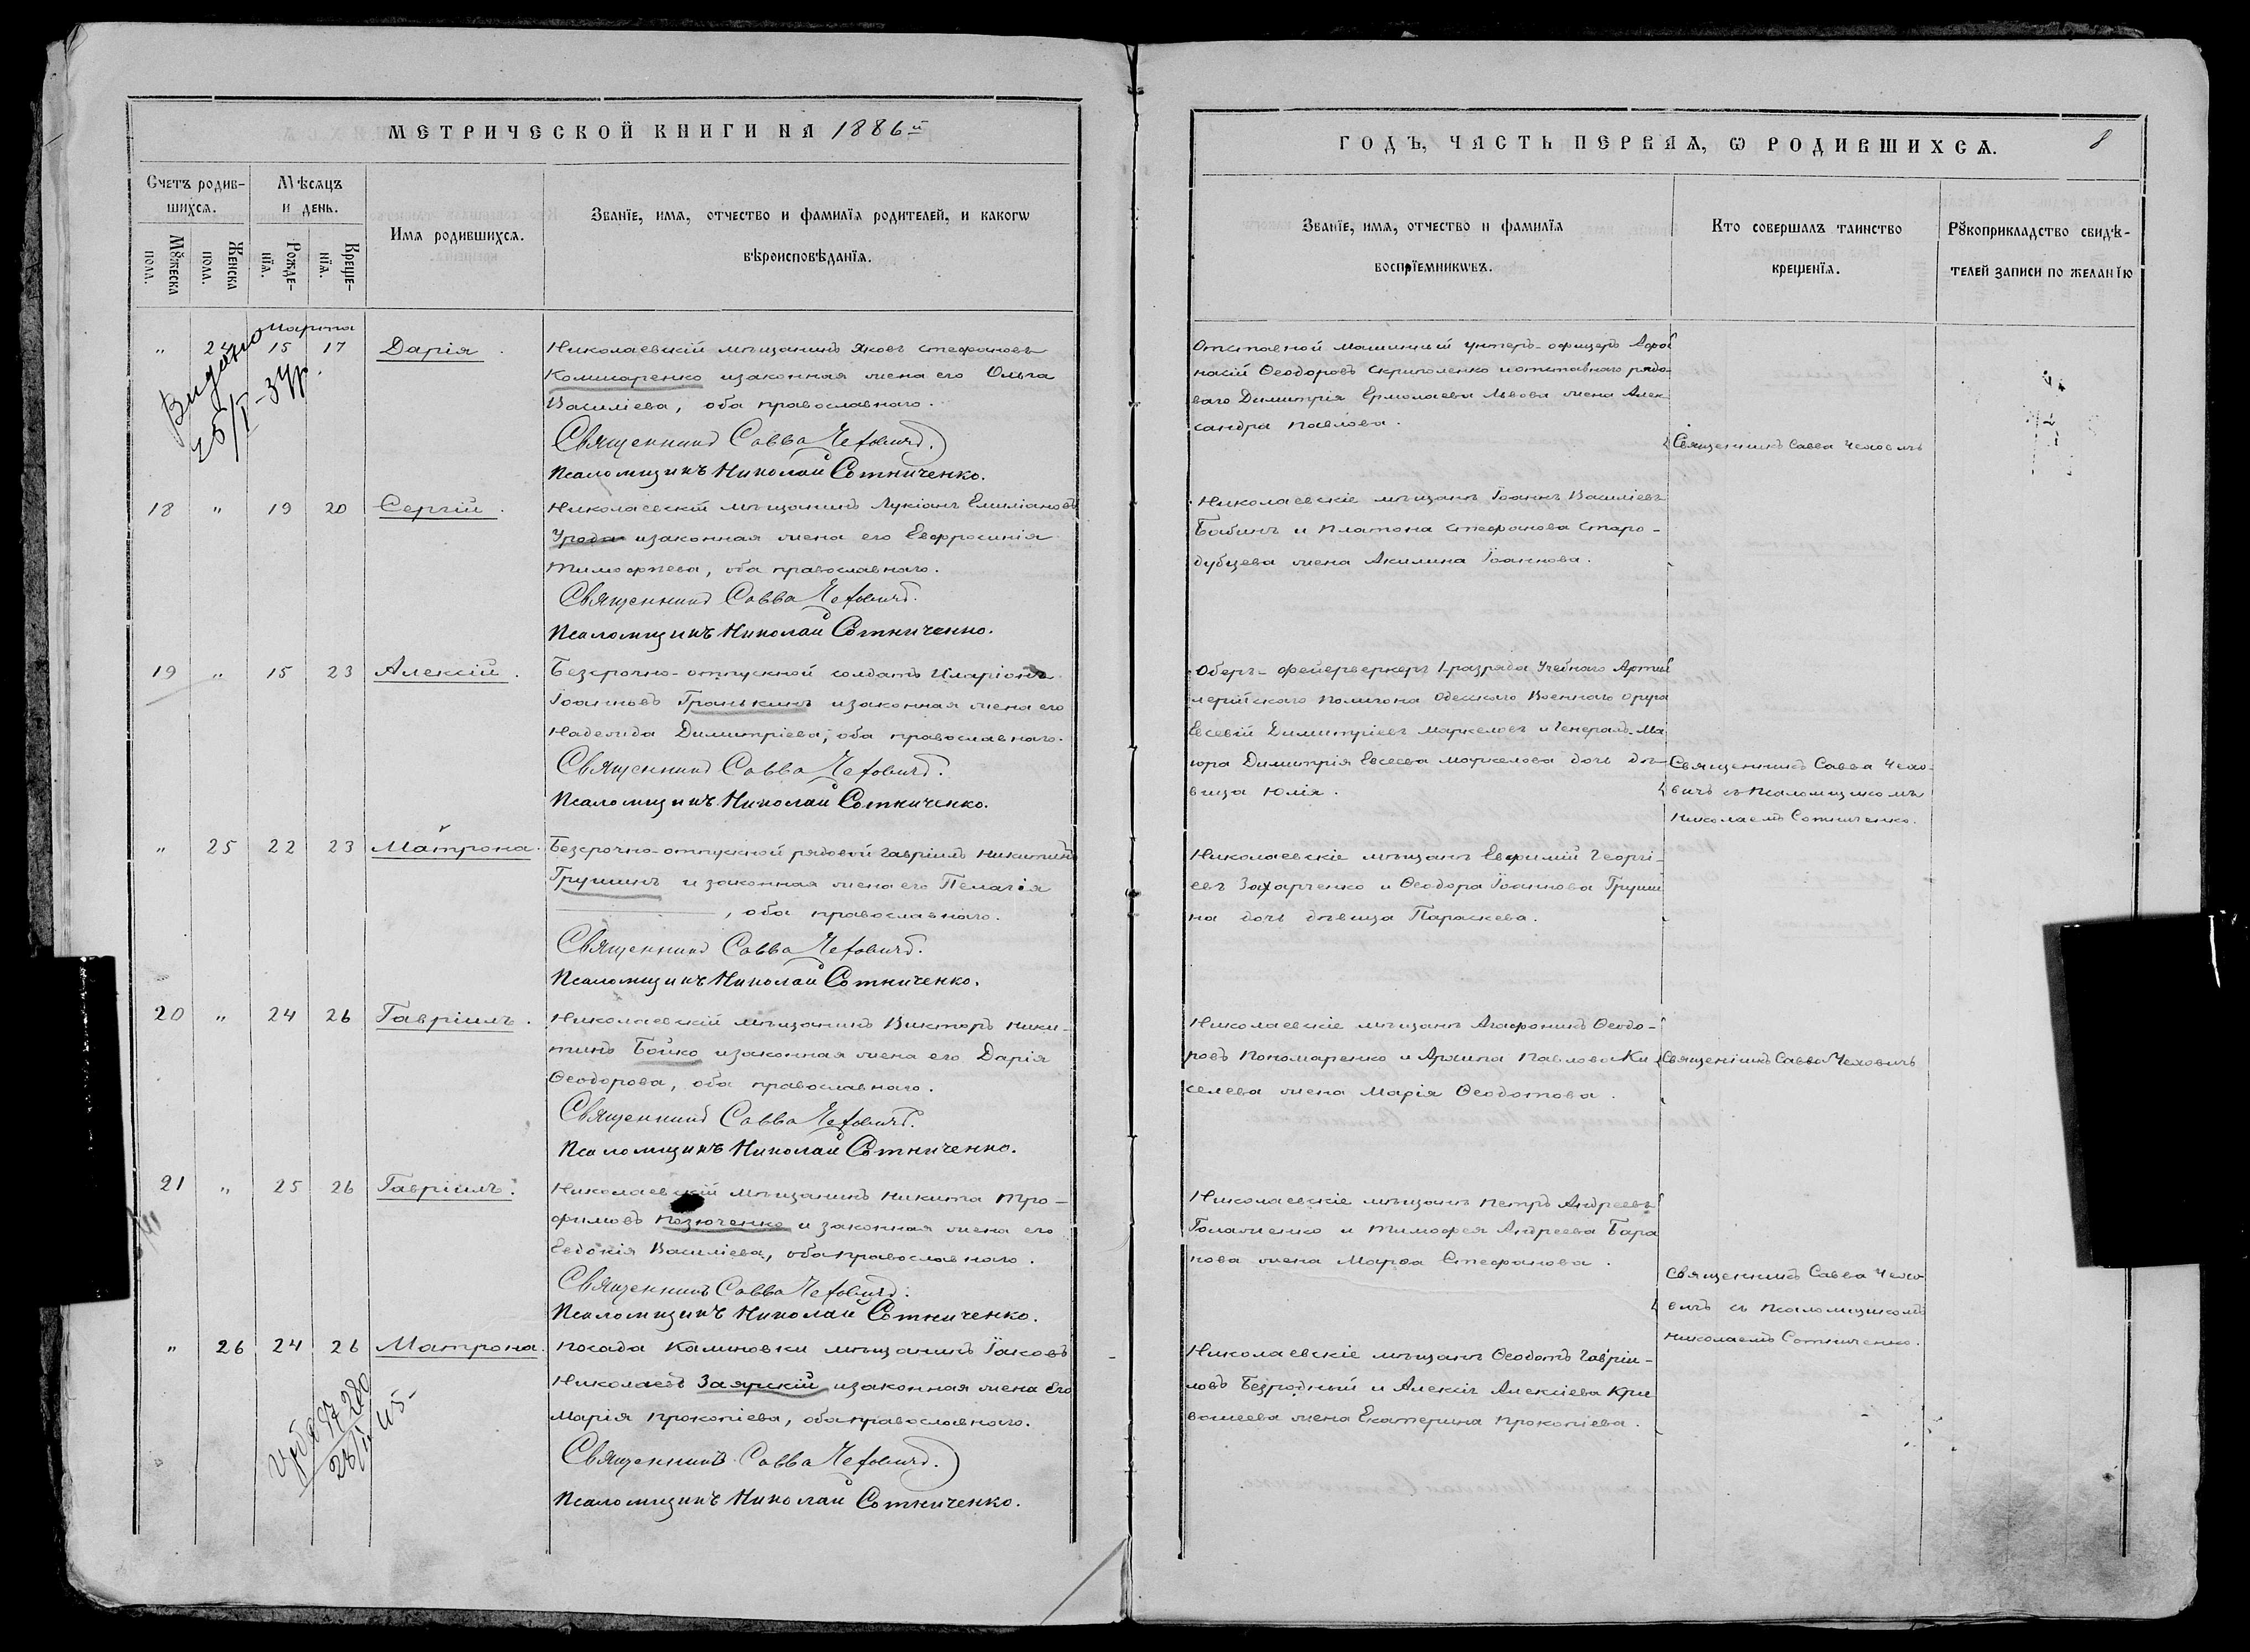 МЕТРИЧЕСКОЙ КНИГИ НА 1886й
Счетъ родив-
шихся.
Мѣсяцъ
и день.
Имя родившихся.
Званїе, имя, отчество и фамилїя родителей, и какогѡ
вѣроисповѣданїя.
Мꙋжеска
пола.
Женска
пола.
Рожде-
нїя.
Креще-
нїя.
Марта
" 24 15 17 Дарія.
Видано
25/I - 34р.
Николаевскій мѣщанинъ Яковъ Стефановъ
Комисаренко и законная жена его Ольга
Василіева, оба православнаго.
Священникъ Савва Чеховичъ.
Псаломщикъ Николай Сотниченко.
18 " 19 20 Сергій.
Николаевскій мѣщанинъ Лукіанъ Емиліановъ
Урода и законная жена его Евфросинія
Тимофѣева, оба православнаго.
Священникъ Савва Чеховичъ.
Псаломщикъ Николай Сотниченко.
19 " 15 23 Алексій.
Безсрочно-отпускной солдатъ Иларіонъ
Іоанновъ Граникинъ и законная жена его
Надежда Димитріева, оба православнаго.
Священникъ Савва Чеховичъ.
Псаломщикъ Николай Сотниченко.
" 25 22 23 Матрона.
Безсрочно-отпускной рядовой Гавріилъ Никитинъ
Грушинъ и законная жена его Пелагія
, оба православнаго.
Священникъ Савва Чеховичъ.
Псаломщикъ Николай Сотниченко.
20 " 24 26 Гавріилъ.
Николаевскій мѣщанинъ Викторъ Ники-
тинъ Бойко и законная жена его Дарія
Ѳеодорова, оба православнаго.
Священникъ Савва Чеховичъ.
Псаломщикъ Николай Сотниченко.
21 " 25 26 Гавріилъ.
Николаевскій мѣщанинъ Никита Тро-
фимовъ Козюченко и законная жена его
Евдокія Василіева, оба православнаго.
Священникъ Савва Чеховичъ.
Псаломщикъ Николай Сотниченко.
" 26 24 26 Матрона.
28/II 45-
Посада Калиновки мѣщанинъ Іаковъ
Николаевъ Заярскій и законная жена его
Марія Прокопіева, оба православнаго.
Священникъ Савва Чеховичъ.
Псаломщикъ Николай Сотниченко.
ГОДЪ, ЧАСТЬ ПЕРВАЯ, Ѡ РОДИВШИХСЯ. 8
Званїе, имя, отчество и фамилїя
воспрїемникѡвъ.
Кто совершалъ таинство
крещенїя.
Рꙋкоприкладство свидѣ-
телей записи по желанїю
Отставной машинный унтеръ-офицеръ Аѳа-
насій Ѳеодоровъ Скриполенко и отставнаго рядо-
ваго Димитрія Ермолаева Львова жена Алек
сандра Павлова.
Священникъ Савва Чеховичъ
Николаевскіе мѣщане Іоаннъ Василіевъ
Бабинъ и Платона Стефанова Старо-
дубцева жена Акилина Іоаннова.
Оберъ-фейерверкеръ 1-разряда Учебнаго Артил
лерійскаго Полигона Одесскаго Военнаго Округа
Евсевій Димитріевъ Маркеловъ и Генералъ-Ма
іора Димитрія Евсеева Маркелова дочь дѣ-
вица Юлія.
Священникъ Савва Чехо-
вичъ съ Псаломщикомъ
Николаемъ Сотниченко.
Николаевскіе мѣщане Евфимій Георгі-
евъ Захарченко и Ѳеодора Іоаннова Груши
на дочь дѣвица Параскева.
Николаевскіе мѣщане Агафоникъ Ѳеодо-
ровъ Пономаренко и Архипа Павлова Ки-
селева жена Марія Ѳеодотова.
Священникъ Савва Чеховичъ
Николаевскіе мѣщане Петръ Андреевъ
Голатенко и Тимофея Андреева Бара
нова жена Марѳа Стефанова.
Священникъ Савва Чехо-
вичъ съ Псаломщикомъ
Николаемъ Сотниченко.
Николаевскіе мѣщане Ѳеодотъ Гавріи-
ловъ Безродный и Алексія Алексіева Кри
вошеева жена Екатерина Прокопіева.